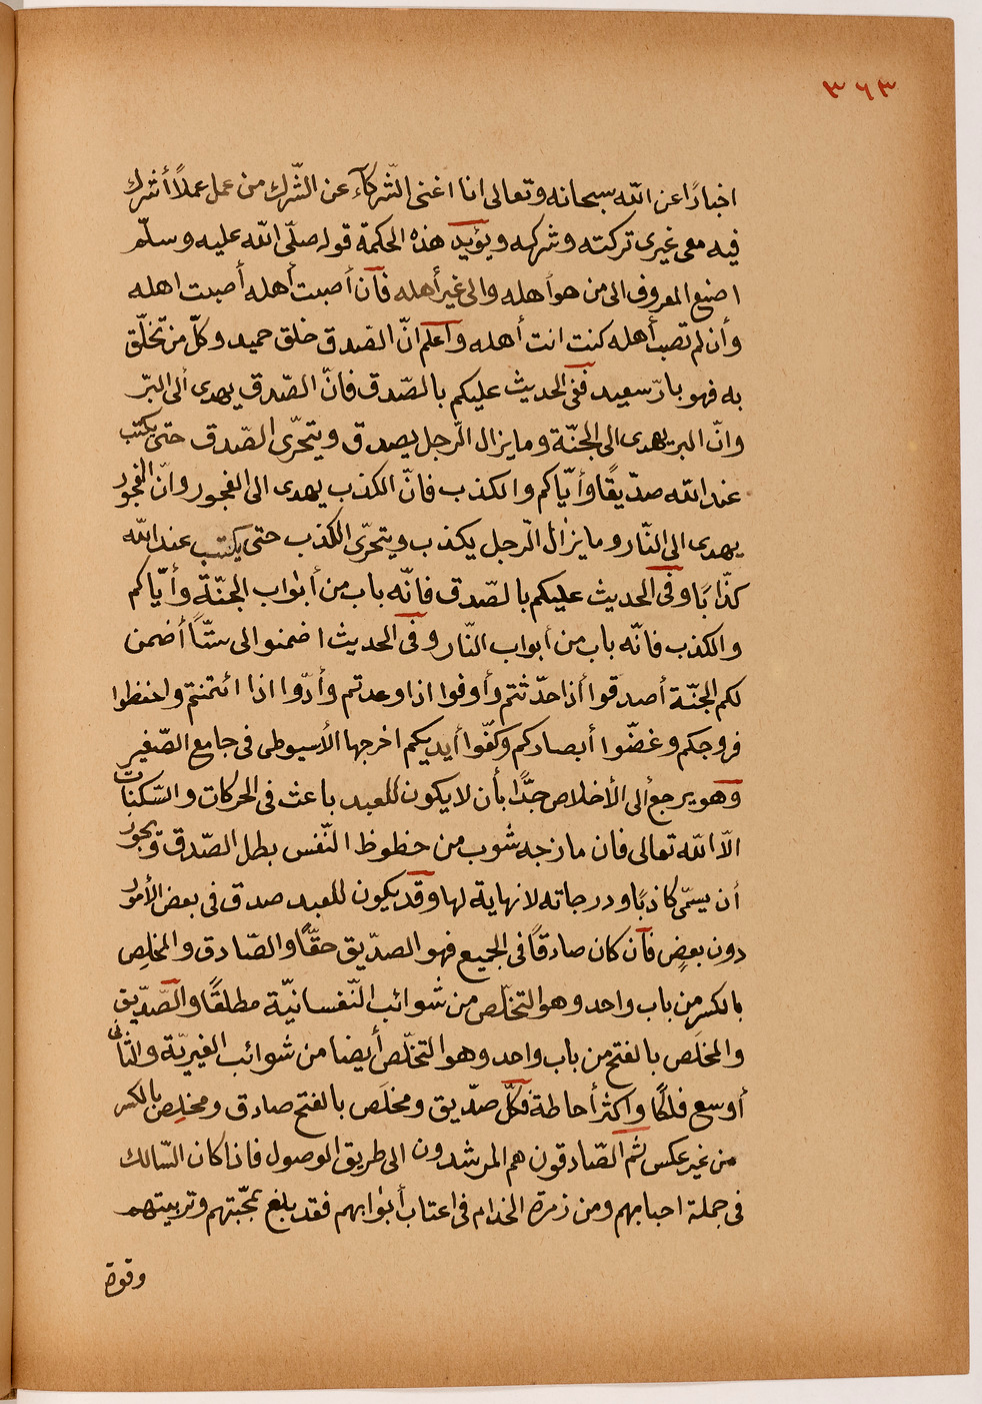 ٣٦٣
اخبارًا عن الله سبحانه وتعالى انا اغنى الشّركآء عن الشّرك من عمل عملاً أشرك
فيه معى غيرى تركته وشركه ويؤيد هذه الحكمة قوله صلّى الله عليه وسلّم
اصنع المعروف الى من هو أهله والى غير أهله فآن أصبت أهله أصبت اهله
وأن لم تصب أهله كنت انت أهله وآعلم انّ الصّدق خلق حميد وكلّ من تخلّق
به فهو بارّ سعيد ففى الحديث عليكم بالصّدق فانّ الصّدق يهدى ألى البرّ
وانّ البر يهدى الى الجنّة وما يزال الرّجل يصدق ويتحرّى الصّدق حتى يكتب
عند الله صدّيقًا وأيّاكم والكذب فانّ الكذب يهدى الى الفجور وانّ الفجور
يهدى الى النّار وما يزال الرّجل يكذب ويتحرّى الكذب حتى يكتب عند الله
كذّابًا وفى الحديث عليكم بالصّدق فانّه باب من أبواب الجنّة وأيّاكم
والكذب فانّه باب من أبواب النّار وفى الحديث اضمنوا الى ستّاً أضمن
لكم الجنّة أصدقوا أذا حدّثتم وأوفوا اذا وعدتم وأدّوا اذا ائتمنتم واحفظوا
فروجكم وغضّوا أبصاركم وكفّوا أيديكم اخرجها الأسيوطى فى جامع الصّغير
وهو يرجع ألى الأخلاص جدًّا بأن لا يكون للعبد باعث فى الحركات والسّكنات
الّا الله تعالى فان مازجه شوب من حظوظ النّفس بطل الصّدق ويجوز
أن يسمّى كاذبًا ودرجاته لا نهاية لها وقد يكون للعبد صدق فى بعض الأمور
دون بعضٍ فآن كان صادقاً فى الجميع فهو الصدّيق حقّاً والصّادق والمخلِص
بالكسر من باب واحد وهو التخلّص من شوائب النّفسانيّة مطلقًا والصّدّيق
والمخلَص بالفتح من باب واحد وهو التخلّص أيضا من شوائب الغيريّة والثّانى
أوسع فلكًا واكثر أحاطة فكلّ صدّيق ومخلَص بالفتح صادق ومخلِص بالكسر
من غير عكس ثم الصّادقون هم المرشدون الى طريق الوصول فاذا كان السّالك
فى جملة احبابهم ومن زمرة الخدام فى اعتاب أبوابهم فقد بلغ بمحبّتهم وتربيتهم
وقوة